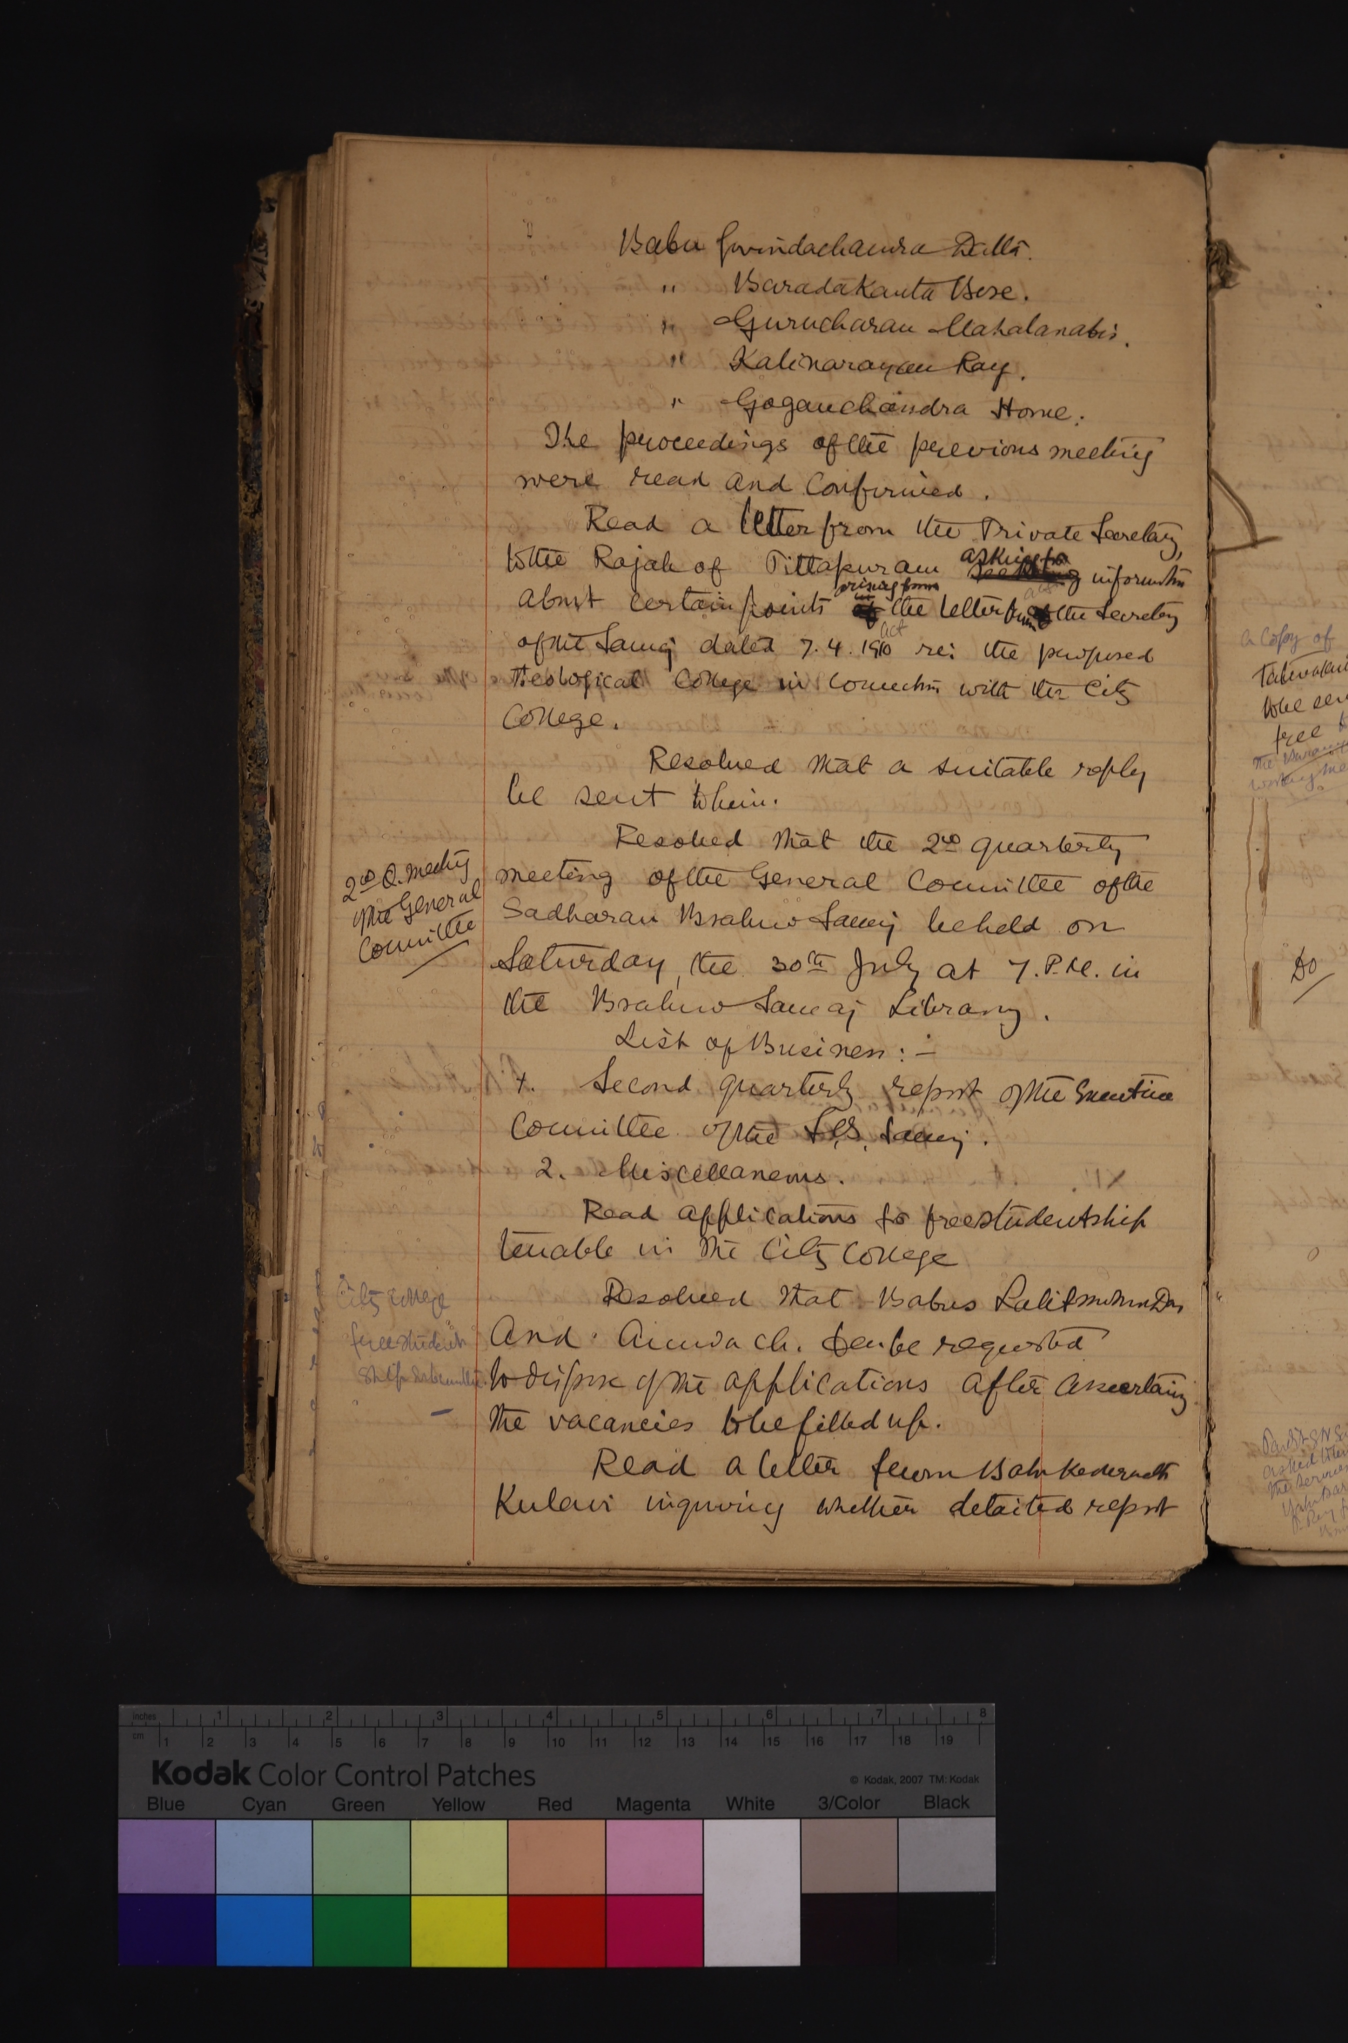 Babu Govindachandra Dutt.
" Baradakanta Bose.
" Gurucharan Mahalanabis.
" Kalinarayan Ray.
" Gaganchandra Home.
The proceedings of the previous meeting
were read and confirmed.
Read a letter from the Private Secretary,
to the Rajah of Pittapuram asking for information
about certain points arising from the letter from the Secretary
of the Samaj dated 7.4.1910 re: the proposed
Theological College in connection with the City
College.
Resolved that a suitable reply
be sent to him.
2nd Q. Meeting
of the General
Committee
Resolved that the 2nd quarterly
meeting of the General Committee of the
Sadharan Brahmo Samaj be held on
Saturday, the 30th July at 7. P.M. in
the Brahmo Samaj Library.
List of Business:-
1. Second quarterly report of the Executive
Committee of the S.B. Samaj.
2. Miscellaneous.
Read applications for freestudentship
tenable in the City College
City College
free student
ship
Resolved that Babus Lalitmohan Das
and Ch. Sen be requested
to dispose of the applications after ascertaining
the vacancies to be filled up.
Read a letter from Babu Kedarnath
Kulavi inquiring whether detailed report
a copy of
to be sent
free
Do
inches 1 2 3 4 5 6 7 8
cm 1 2 3 4 5 6 7 8 9 10 11 12 13 14 15 16 17 18 19
Kodak Color Control Patches
© Kodak, 2007 TM: Kodak
Blue Cyan Green Yellow Red Magenta White 3/Color Black